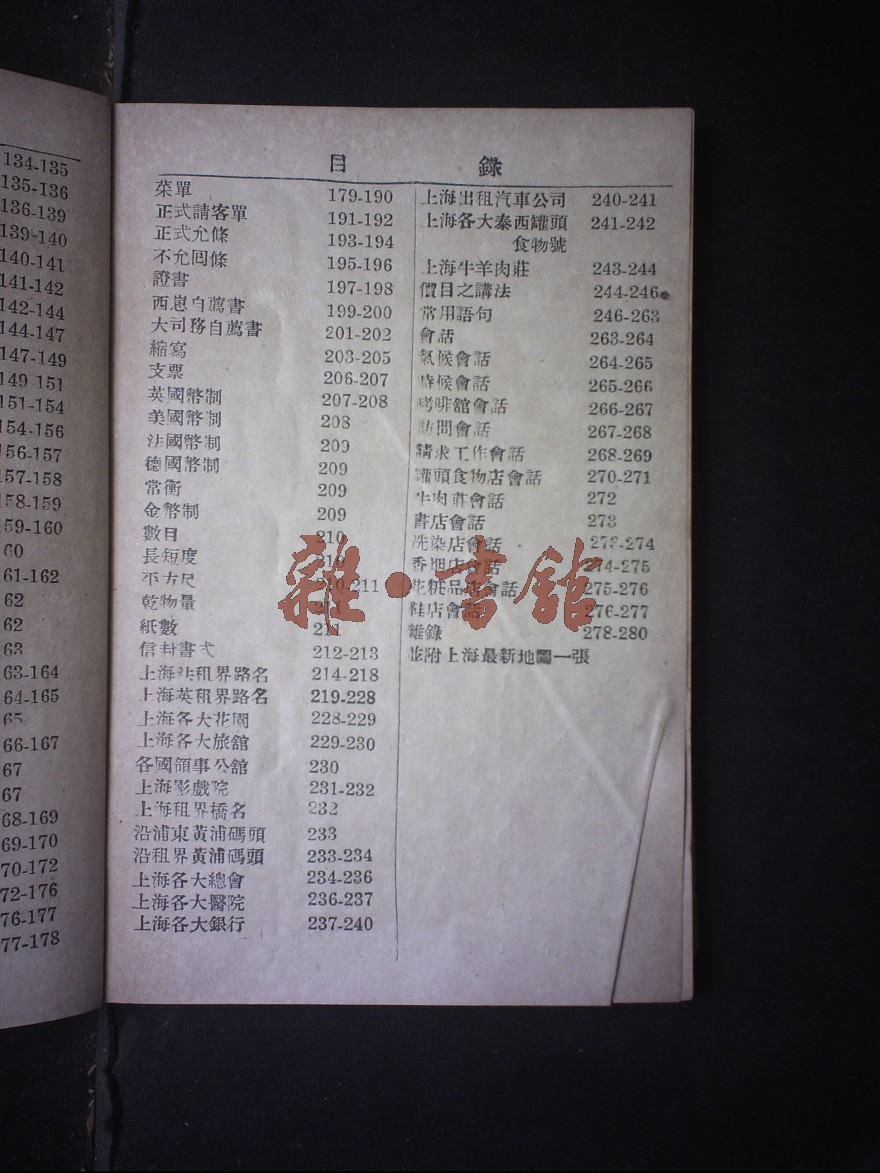 134-135
135-136
136-139
139-140
140-141
141-142
142-144
144-147
147-149
149 151
151-154
154-156
156-157
157-158
158-159
59-160
60
61-162
62
62
63
63-164
64-165
65
66-167
67
67
68-169
69-170
70-172
72-176
76-177
77-178
目 錄
菜單 179-190
正式請客單 191-192
正式允條 193-194
不允回條 195-196
證書 197-198
西崽自薦書 199-200
大司務自薦書 201-202
縮寫 203-205
支票 206-207
英國幣制 207-208
美國幣制 208
法國幣制 209
德國幣制 209
常衡 209
金幣制 209
數目 210
長短度 210
平方尺 210-211
乾物量 211
紙數 211
信封書式 212-213
上海法租界路名 214-218
上海英租界路名 219-228
上海各大花園 228-229
上海各大旅館 229-230
各國領事公館 230
上海影戲院 231-232
上海租界橋名 232
沿浦東黃浦碼頭 233
沿租界黃浦碼頭 233-234
上海各大總會 234-236
上海各大醫院 236-237
上海各大銀行 237-240
上海出租汽車公司 240-241
上海各大泰西罐頭 241-242
食物號
上海牛羊肉莊 243-244
價目之講法 244-246
常用語句 246-263
會話 263-264
氣候會話 264-265
時候會話 265-266
咖啡館會話 266-267
訪問會話 267-268
請求工作會話 268-269
罐頭食物店會話 270-271
牛肉莊會話 272
書店會話 273
洗染店會話 273-274
香烟店會話 274-275
花粧品店會話 275-276
鞋店會話 276-277
雜錄 278-280
並附上海最新地圖一張
雜·書館